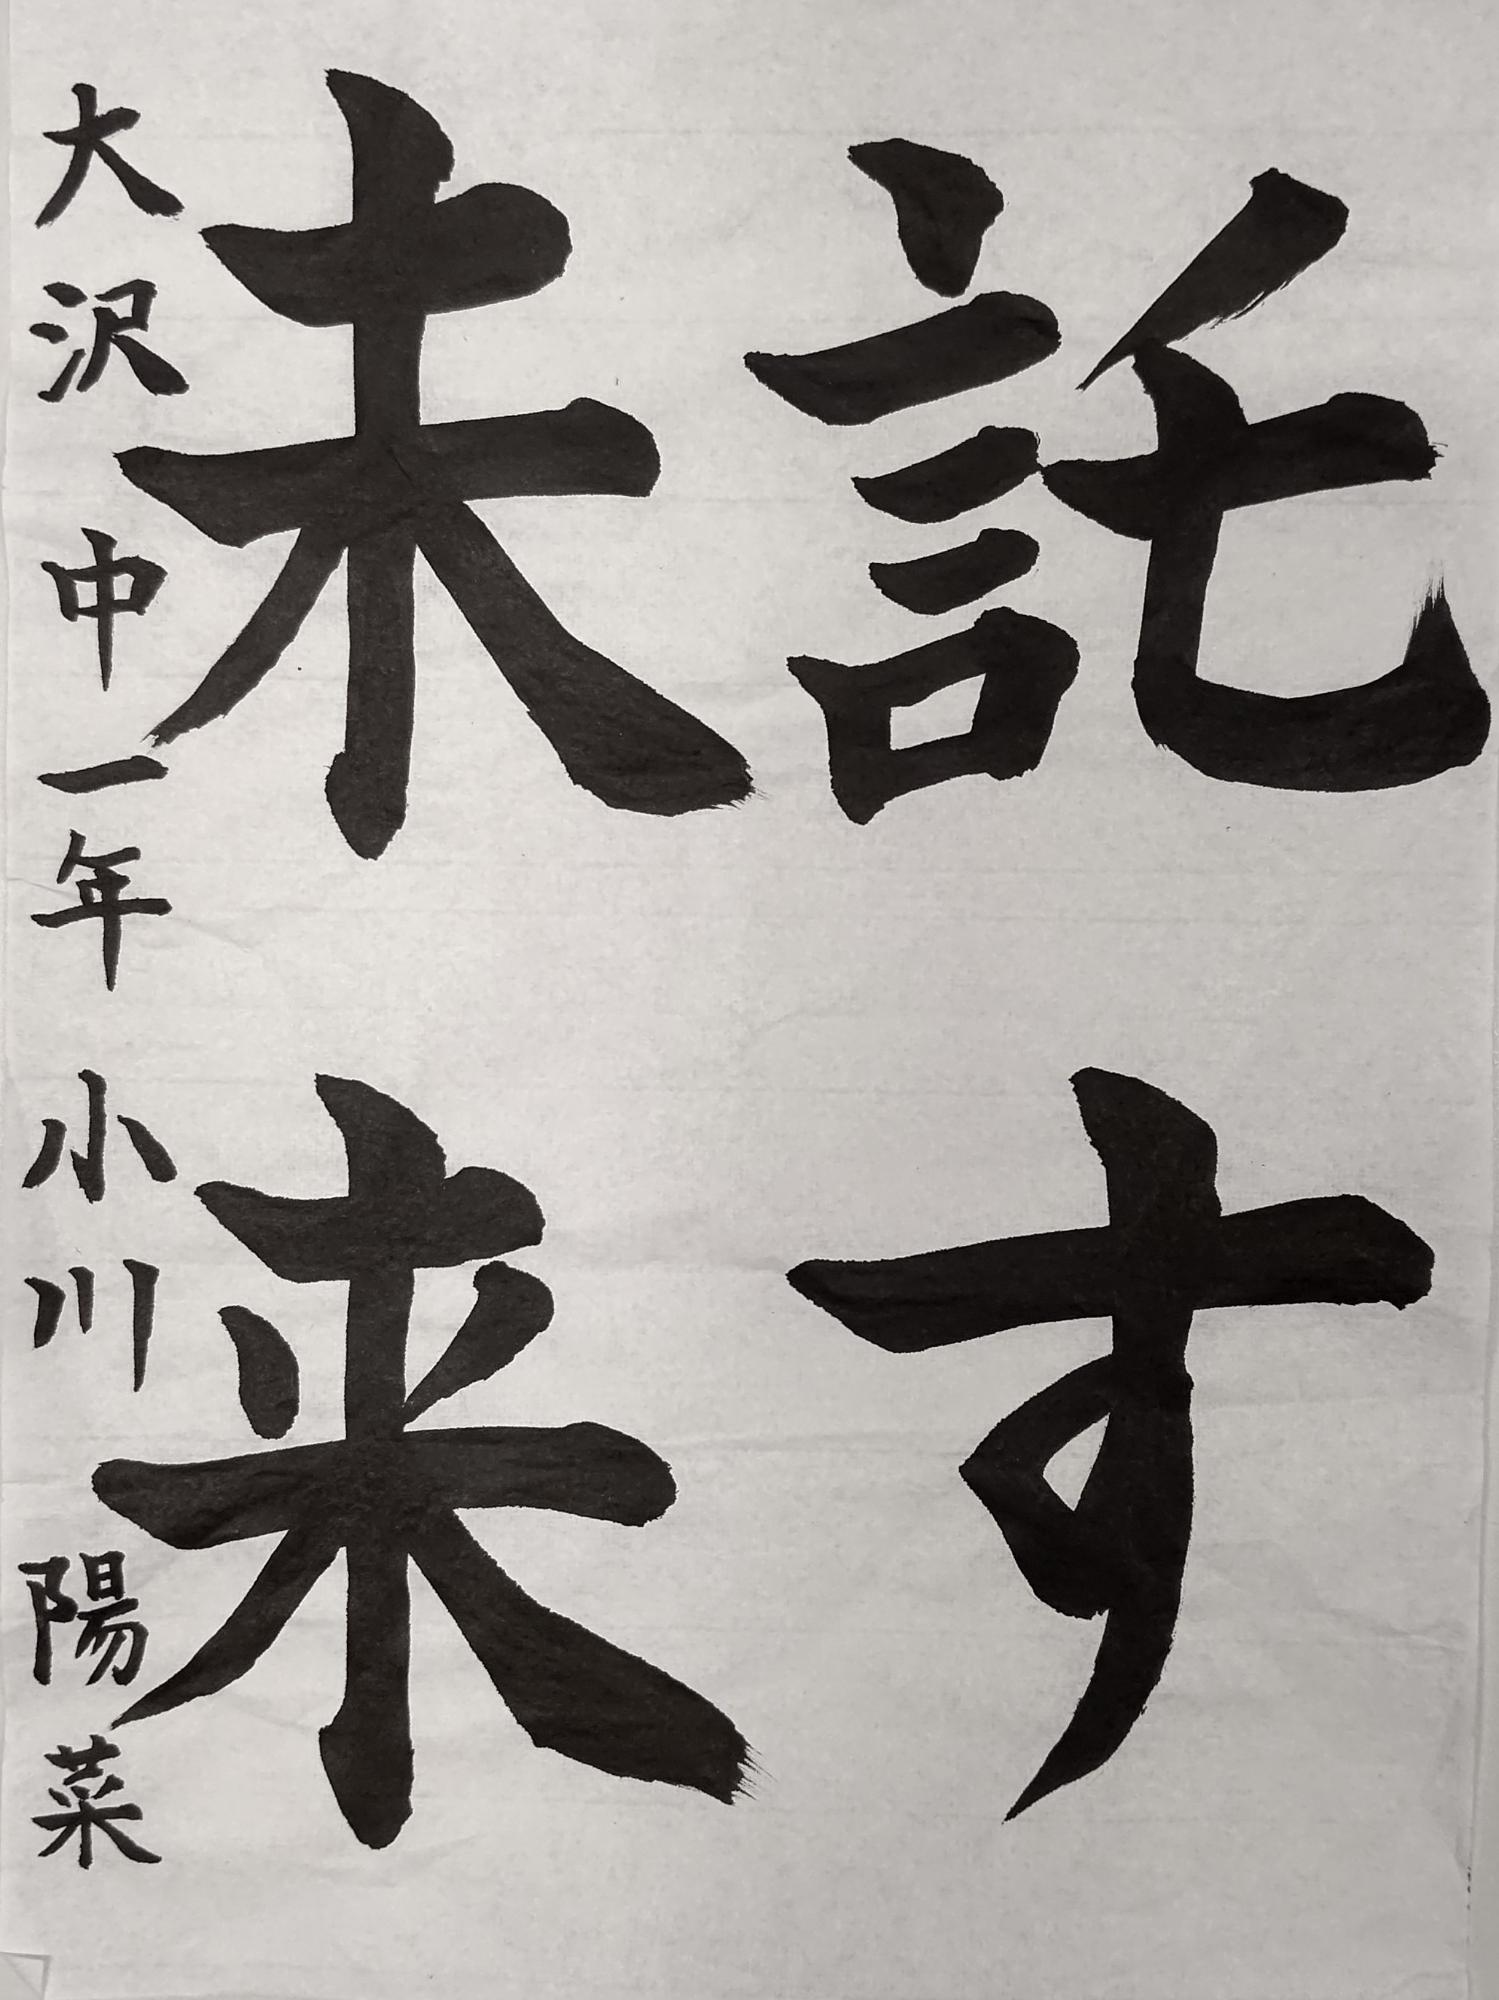 託す
未来
大沢中一年 小川 陽菜